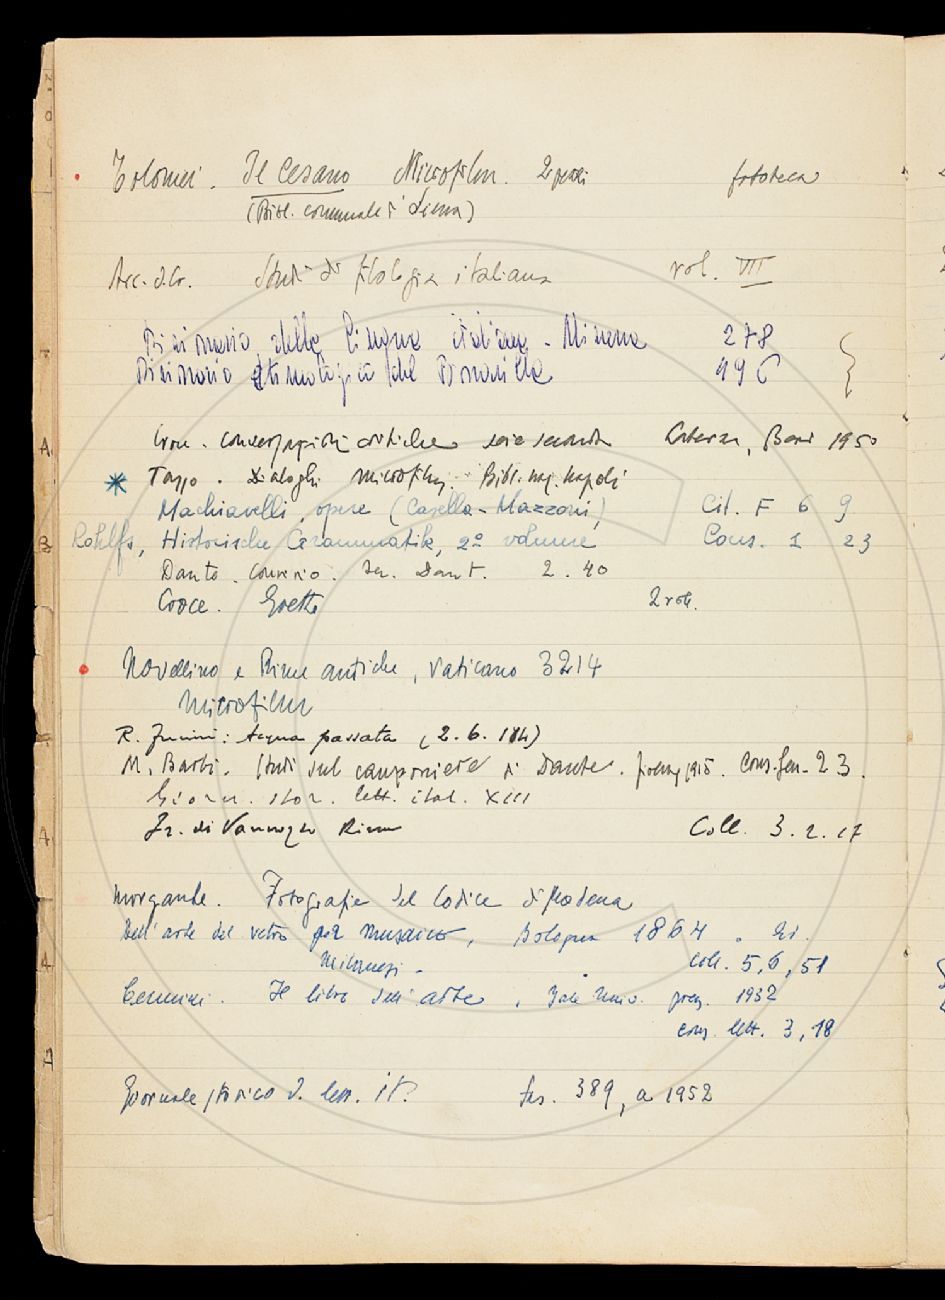 Tolomei. Il Cesano Microfilm. 2 pezzi fototeca
(Bibl. comunale di Siena)
Acc. d. Cr. Studi di filologia italiana vol. VII
Dizionario della lingua italiana - Minerva 278
Dizionario etimologico del Bonavilla 496
Croce. Conversazioni critiche serie seconda Laterza, Bari 1950
* Tasso. Dialoghi microfilm. Bibl. naz. Napoli
Machiavelli, opere (Casella - Mazzoni) Cit. F 6 9
Rohlfs, Historische Grammatik, 2º volume Cons. I 23
Dante. Convivio. Dant. 2. 40
Croce. Goethe 2 voll.
Novellino e Rime antiche, Vaticano 3214
Microfilm
R. : Acqua passata (2. 6. 184)
M. Barbi. Studi sul canzoniere di Dante. 1915. Cons. 23.
Giorn. stor. lett. ital. XIII
Fr. di Vannozzo Rime Coll. 3. 2. 17
Morgante. Fotografie del Codice di Modena
Dell'arte del vetro per musaico, Bologna 1864. Ed.
Milanesi. coll. 5, 6, 51
Cennini. Il libro dell'arte, Yale Univ. press. 1932
cons. lett. 3, 18
Giornale storico d. lett. it. fas. 389, a 1952